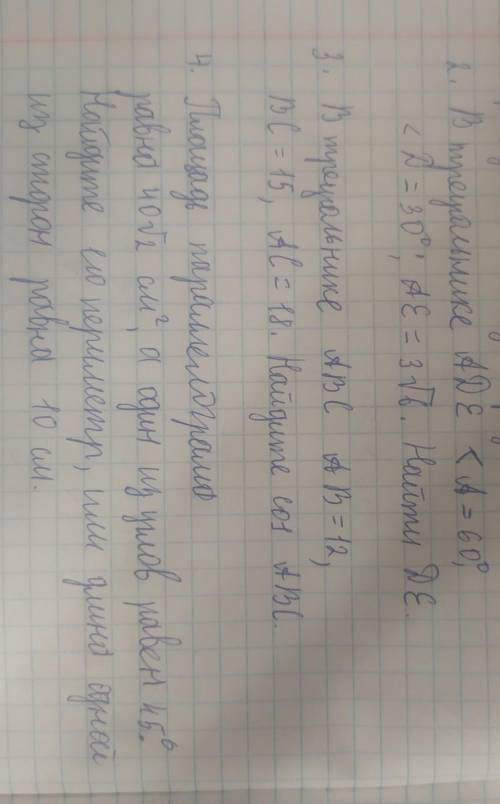 2. В треугальнике ADE < A = 60°,
< D = 30°, AE = 3√6. Найти DE.
3. В треугальнике ABC AB = 12,
BC = 15, AC = 18. Найдите cos ABC.
4. Площадь параллелограма
равна 40√2 см², а один из углов равен 45°.
Найдите его периметр, или длина одной
из сторон равна 10 см.